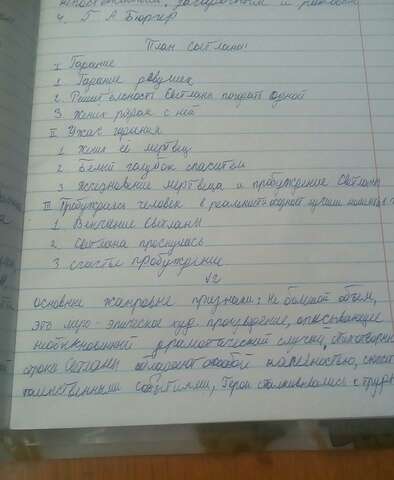 4. Г. А Бюргер
План Светлана:
I Гадание
1 Гадание девушек
2. Решительность Светланы погадать одной
3. Жених рядом с ней
II. Ужас гадания
1. Жених её мертвец
2 Белый голубок спаситель
3 Исчезновение мертвеца и пробуждение Светланы
III Пробуждался человек в реальность
1. Венчание Светланы
2. Светлана проснулась
3. счастье пробуждение
√2
Основные жанровые признаки: Не большой объем,
это лиро-эпическое худ. произведение, описывающие
необыкновенный драматический случай,
строки Светланы обладают особой напевностью,
таинственными событиями, Герои сталкивались с